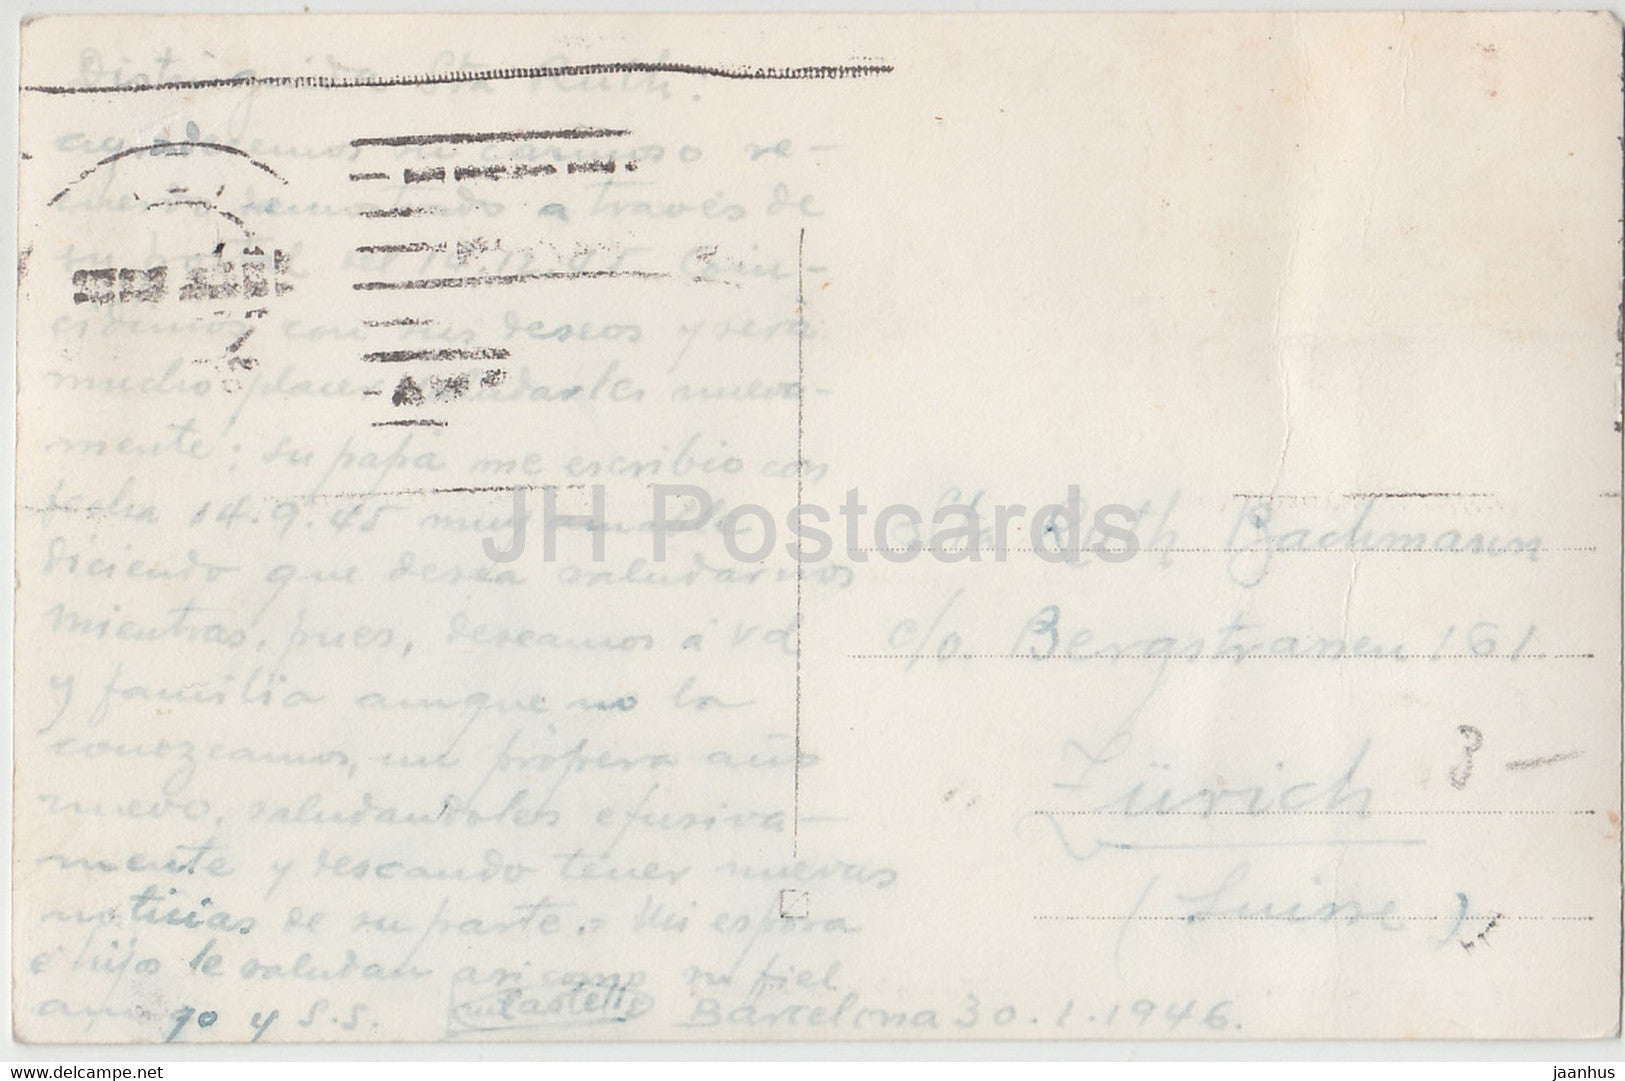 Distinguida Sta Ruth.
agradecemos su cariñoso re-
cuerdo demostrado a través de
su postal del
cidimos con sus deseos y sera
mucho placer saludarles nueva-
mente; su papá me escribio con
fecha 14.9.45 muy amable
diciendo que desea saludarnos
mientras, pues, deseamos á vd
y familia aunque no la
conozcamos, un próspero año
nuevo, saludandoles efusiva-
mente y descando tener nuevas
noticias de su parte. = Mi espora
é hijos le saludan asi como su fiel
amigo y S.S. Castelló Barcelona 30.1.1946.
Sta Ruth Bachmann
c/o. Bergstrassen 161.
Zürich
(Suisse)
3 —
JH Postcards
delcampe.net
jaanhus